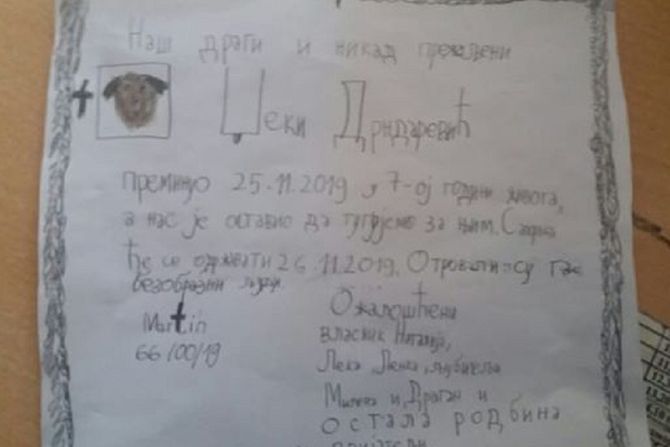 Наш драги и никад прежаљени
Џеки Дрндаревић
преминуо 25.11.2019 у 7-ој години живота,
а нас је оставио да тугујемо за њим. Сахрана
ће се одржати 26.11.2019. Отровали су га
безобразни људи.
Martin
66/00/19
Ожалошћени
власник Наталија,
Лела
Милева и Драган и
остала родбина